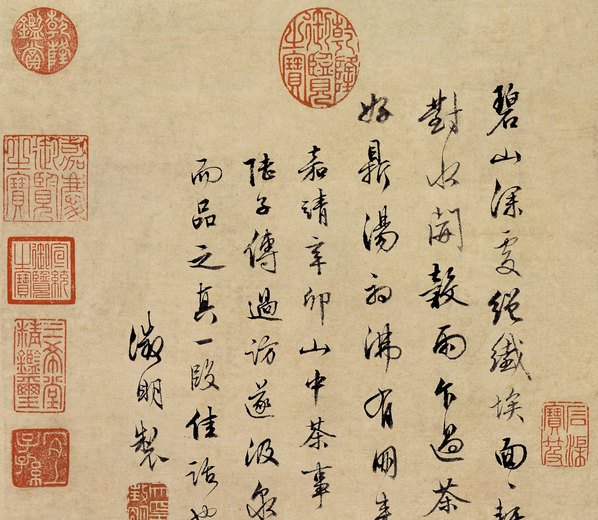 碧山深處絕纖埃面〻
對水開穀雨乍過茶
好鼎湯初沸有朋來
嘉靖辛卯山中茶事
陸子傳過訪遂汲泉
而品之真一段佳話也
徵明製
乾隆御覽之寶
乾隆鑑賞
嘉慶御覽之寶
宣統御覽之寶
三希堂精鑑璽
宜子孫
石渠寶笈